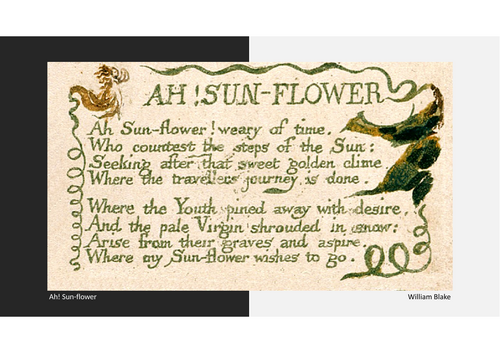 AH! SUN-FLOWER
Ah Sun-flower! weary of time.
Who countest the steps of the Sun:
Seeking after that sweet golden clime
Where the travellers journey is done.
Where the Youth pined away with desire,
And the pale Virgin shrouded in snow:
Arise from their graves and aspire,
Where my Sun-flower wishes to go.
Ah! Sun-flower
William Blake